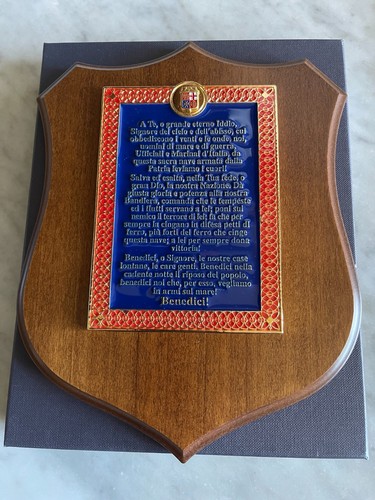 A Te, o grande eterno Iddio,
Signore del cielo e dell'abisso, cui
obbediscono i venti e le onde, noi,
uomini di mare e di guerra,
Ufficiali e Marinai d'Italia, da
questa sacra nave armata dalla
Patria leviamo i cuori!
Salva ed esalta, nella Tua fede, o
gran Dio, la nostra Nazione. Da
giusta gloria e potenza alla nostra
Bandiera, comanda che le tempesta
ed i flutti servano a lei; poni sul
nemico il terrore di lei; fa che per
sempre la cingano in difesa petti di
ferro, più forti del ferro che cinge
questa nave; a lei per sempre dona
vittoria!
Benedici, o Signore, le nostre case
lontane, le care genti. Benedici nella
cadente notte il riposo del popolo,
benedici noi che, per esso, vegliamo
in armi sul mare!
Benedici!